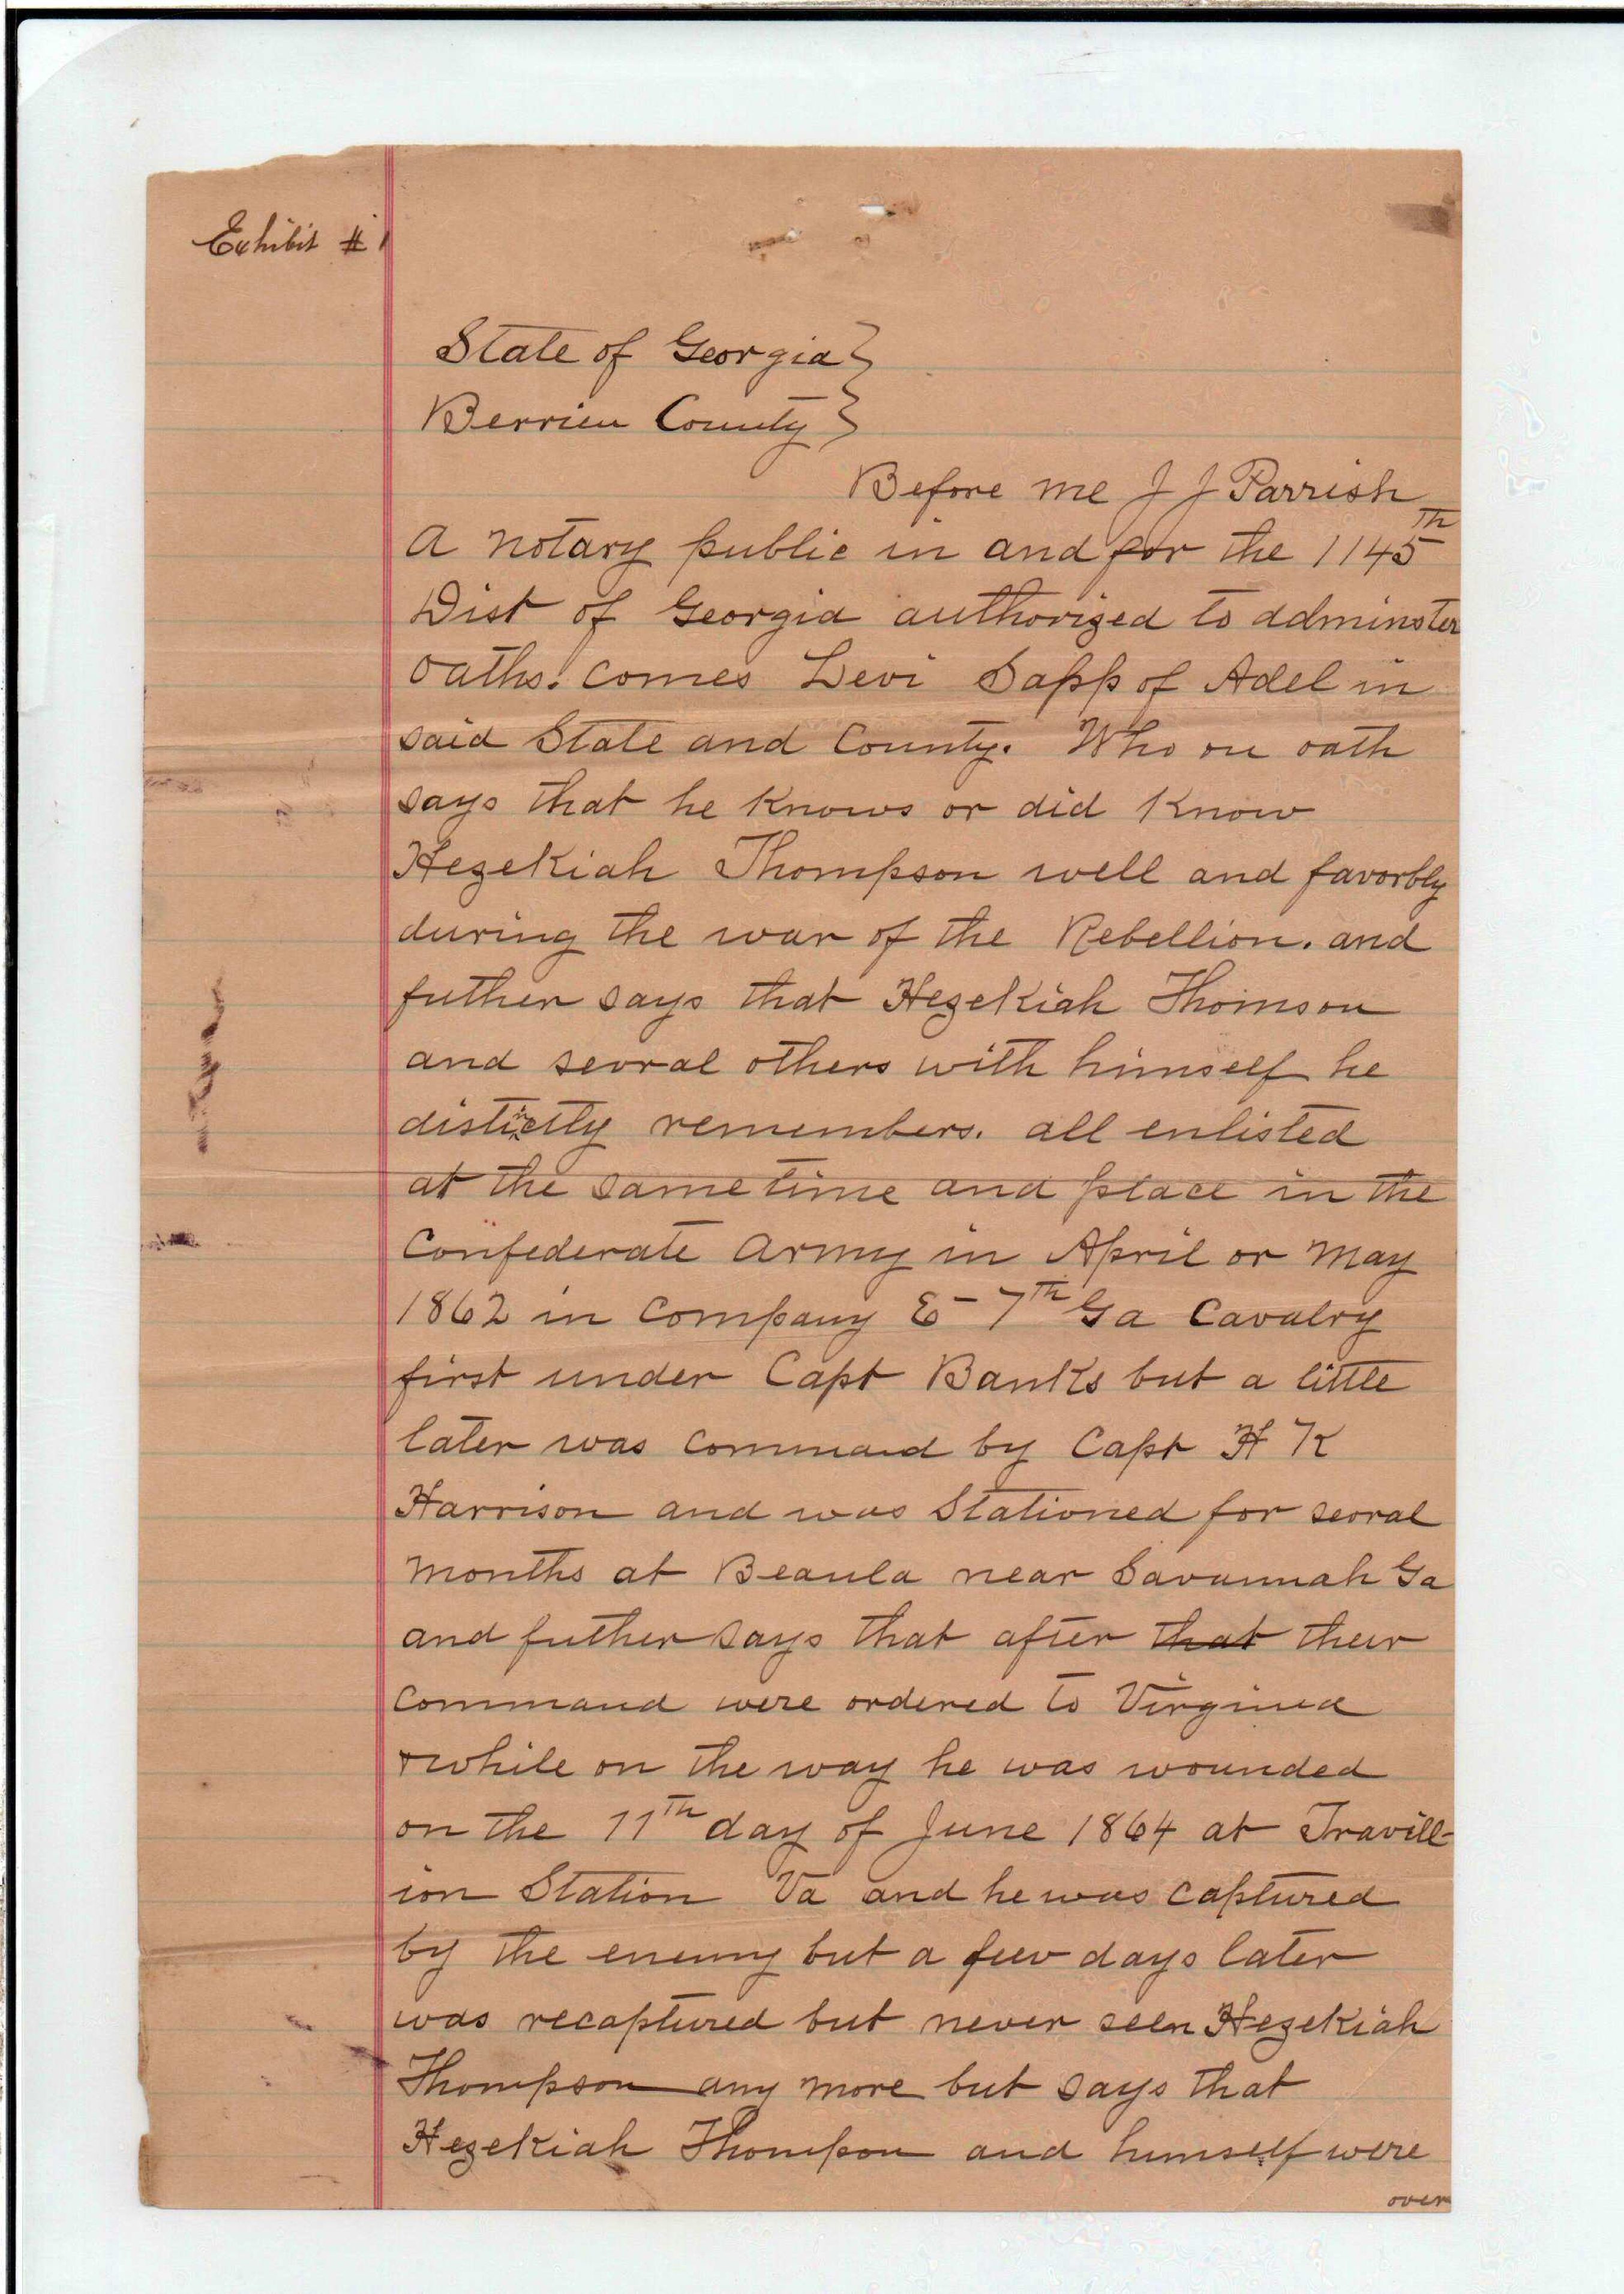 Exhibit # 1
State of Georgia }
Berrien County }
Before me J J Parrish
a notary public in and for the 1145th
Dist of Georgia authorized to adminster
oaths. comes Levi Sapp of Adel in
said State and County. Who on oath
says that he Knows or did Know
Hezekiah Thompson well and favorbly
during the war of the Rebellion. and
futher says that Hezekiah Thomson
and sevral others with himself he
distinctly remembers. all enlisted
at the same time and place in the
Confederate Army in April or May
1862 in Company E - 7th Ga Cavalry
first under Capt Banks but a little
later was command by Capt H K
Harrison and was Stationed for sevral
months at Beaula near Savannah Ga
and futher says that after that their
command were ordered to Virginia
+ while on the way he was wounded
on the 11th day of June 1864 at Travill-
ion Station Va and he was captured
by the enemy but a few days later
was recaptured but never seen Hezekiah
Thompson any more but says that
Hezekiah Thompson and himself were
over